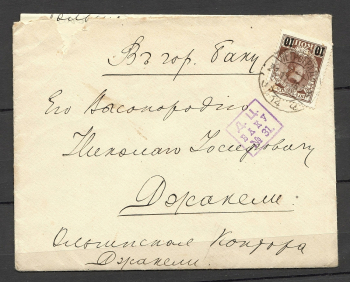 Въ гор. Баку
Его Высокородiю
Николаю Iосифовичу
Джакели.
Ольгинская Контора
Джакели.
10 10
Д. Ц.
БАКУ
№ 31